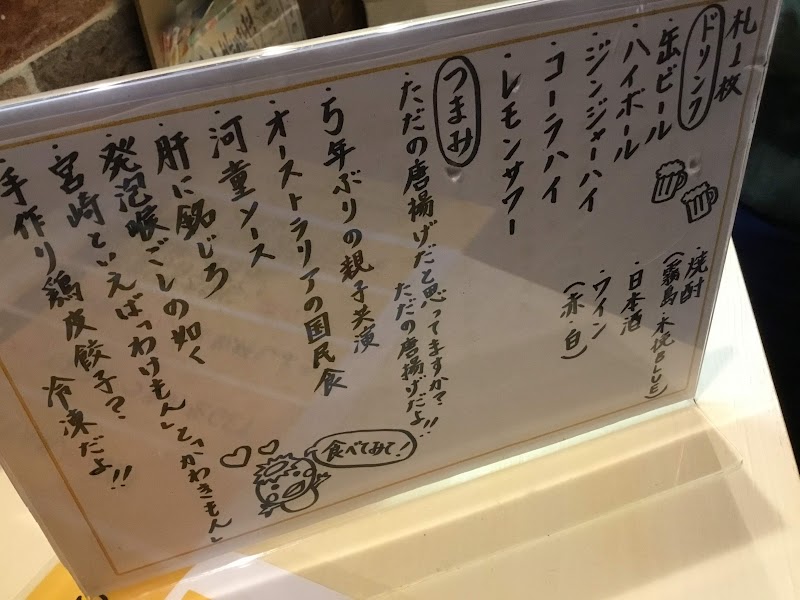 札1枚
ドリンク
・缶ビール
・ハイボール
・ジンジャーハイ
・コーラハイ
・レモンサワー
・焼酎
(霧島・木挽BLUE)
・日本酒
・ワイン
(赤・白)
つまみ
・ただの唐揚げだと思ってますか?
ただの唐揚げだよ!!
・5年ぶりの親子共演
・オーストラリアの国民食
・河童ソース
・肝に銘じろ
・発泡喉ごしの如く
・宮崎といえば「わけもん」と「かわきもん」
・手作り鶏皮餃子?
冷凍だよ!!
食べてみて!